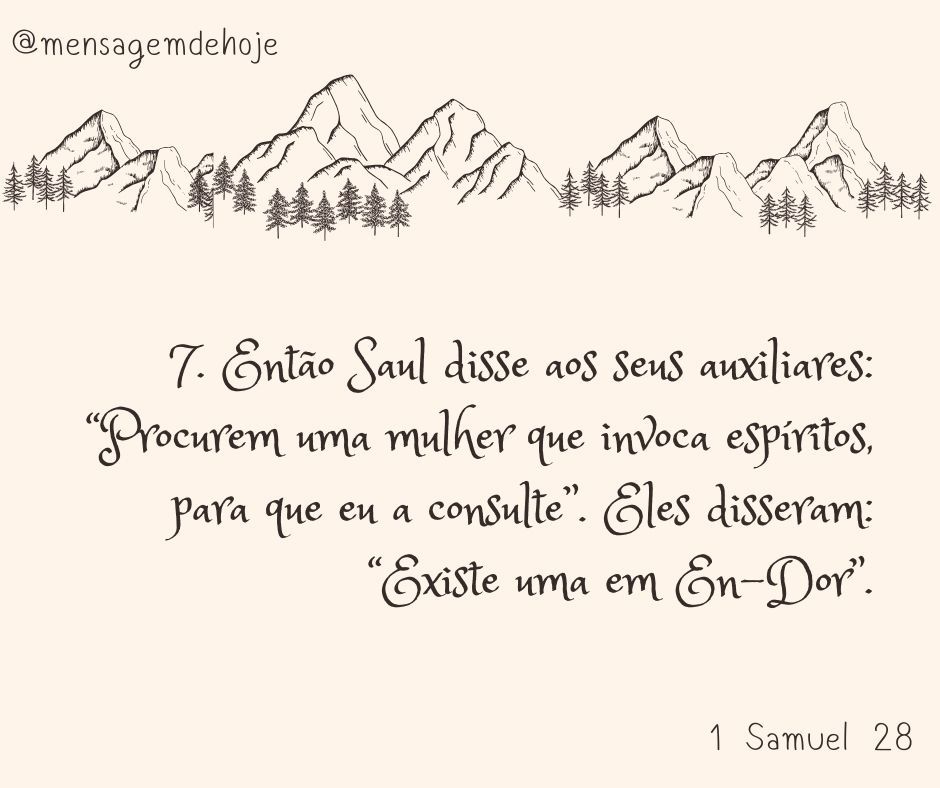 @mensagemdehoje
7. Então Saul disse aos seus auxiliares:
“Procurem uma mulher que invoca espíritos,
para que eu a consulte”. Eles disseram:
“Existe uma em En-Dor”.
1 Samuel 28